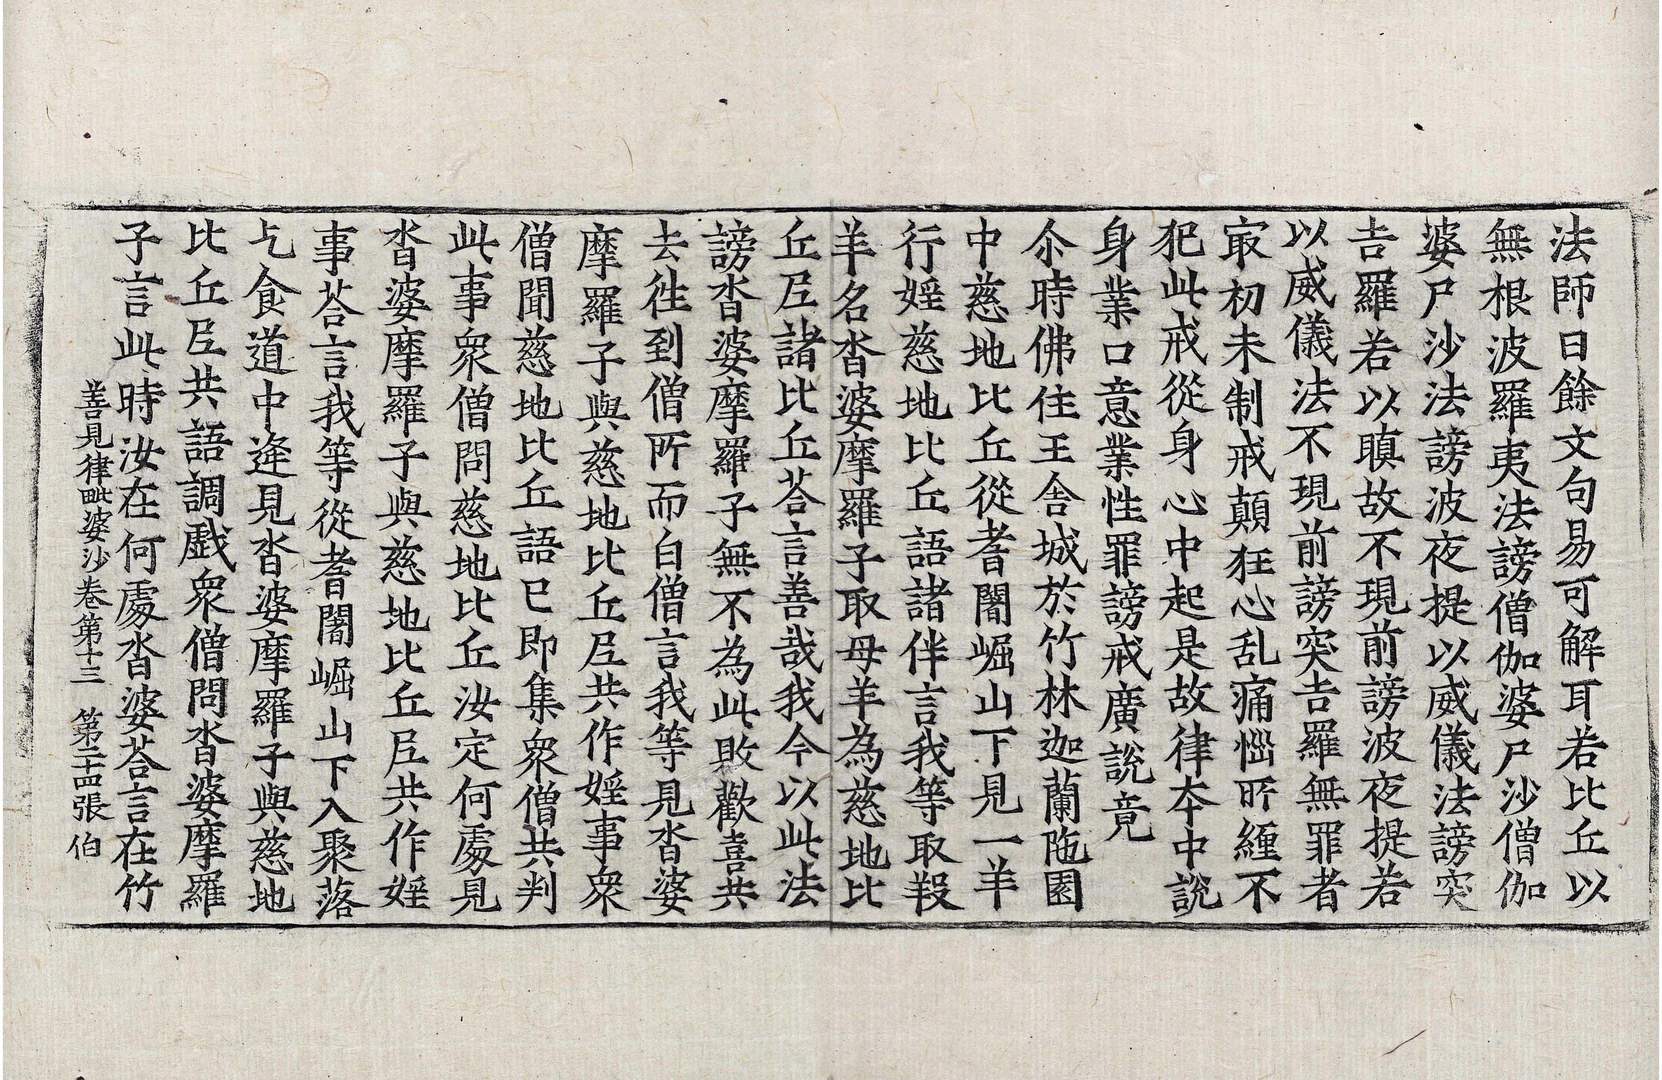 法師曰餘文句易可解耳若比丘以
無根波羅夷法謗僧伽婆尸沙僧伽
婆尸沙法謗波夜提以威儀法謗突
吉羅若以瞋故不現前謗波夜提若
以威儀法不現前謗突吉羅無罪者
㝡初未制戒顛狂心乱痛惱所纏不
犯此戒從身心中起是故律夲中說
身業口意業性罪謗戒廣說竟
尒時佛住王舍城於竹林迦蘭陁園
中慈地比丘從耆闍崛山下見一羊
行婬慈地比丘語諸伴言我等取羖
羊名沓婆摩羅子取母羊為慈地比
丘尼諸比丘荅言善哉我今以此法
謗沓婆摩羅子無不為此敗歡喜共
去徃到僧所而白僧言我等見沓婆
摩羅子與慈地比丘尼共作婬事衆
僧聞慈地比丘語已即集衆僧共判
此事衆僧問慈地比丘汝定何處見
沓婆摩羅子與慈地比丘尼共作婬
事荅言我等從耆闍崛山下入聚落
乞食道中逢見沓婆摩羅子與慈地
比丘尼共語調戲衆僧問沓婆摩羅
子言此時汝在何處沓婆荅言在竹
善見律毗婆沙卷第十三 第二十四張 伯